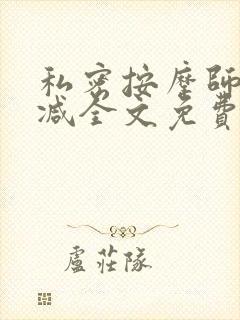 私密按摩師
減全文免費
盧莊隊